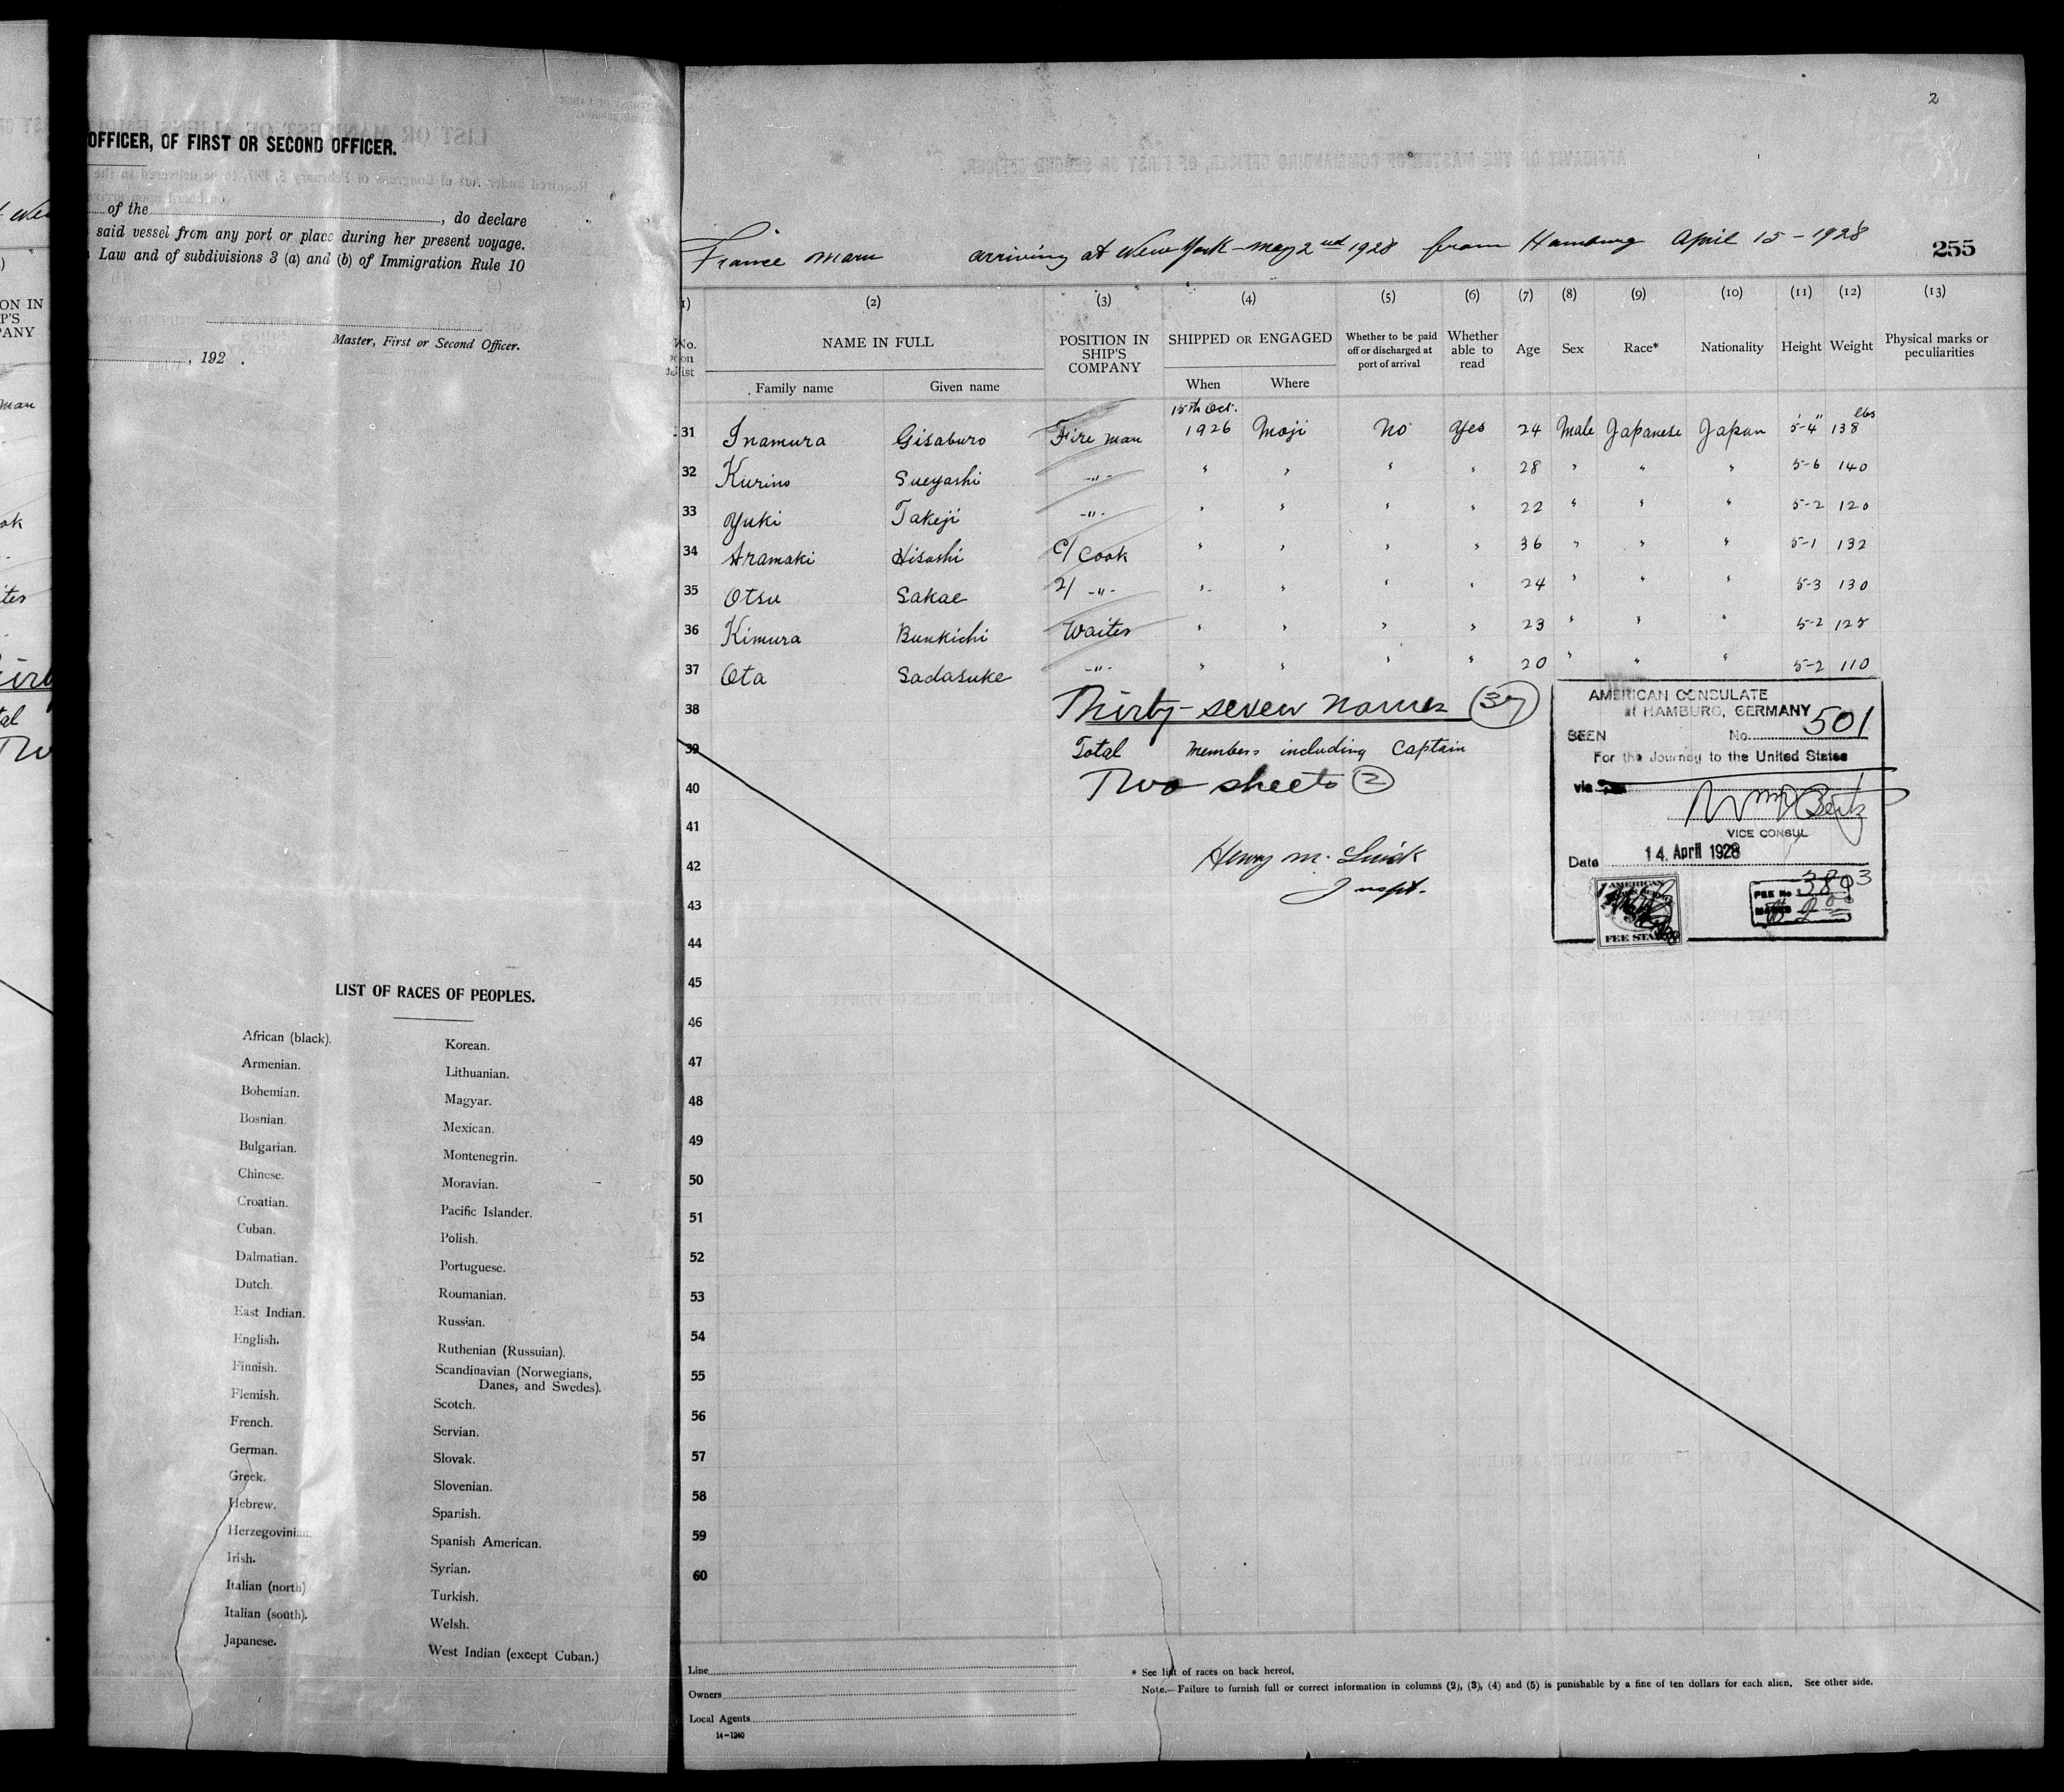 OFFICER, OF FIRST OR SECOND OFFICER.
of the , do declare
said vessel from any port or place during her present voyage.
Law and of subdivisions 3 (a) and (b) of Immigration Rule 10
Master, First or Second Officer.
, 192 .
LIST OF RACES OF PEOPLES.
African (black).
Armenian.
Bohemian.
Bosnian.
Bulgarian.
Chinese.
Croatian.
Cuban.
Dalmatian.
Dutch.
East Indian.
English.
Finnish.
Flemish.
French.
German.
Greek.
Hebrew.
Herzegovinian.
Irish.
Italian (north)
Italian (south).
Japanese.
Korean.
Lithuanian.
Magyar.
Mexican.
Montenegrin.
Moravian.
Pacific Islander.
Polish.
Portuguese.
Roumanian.
Russian.
Ruthenian (Russuian).
Scandinavian (Norwegians,
Danes, and Swedes).
Scotch.
Servian.
Slovak.
Slovenian.
Spanish.
Spanish American.
Syrian.
Turkish.
Welsh.
West Indian (except Cuban.)
2
France Maru arriving at New York - May 2nd 1928 from Hamburg April 15 - 1928 255
(2) (3) (4) (5) (6) (7) (8) (9) (10) (11) (12) (13)
No. list NAME IN FULL POSITION IN SHIP'S COMPANY SHIPPED OR ENGAGED Whether to be paid off or discharged at port of arrival Whether able to read Age Sex Race* Nationality Height Weight Physical marks or peculiarities
Family name Given name When Where
15th Oct. lbs
31 Inamura Gisaburo Fire man 1926 Moji No Yes 24 Male Japanese Japan 5'-4" 138
32 Kurino Sueyashi -"- " " " " 28 " " " 5-6 140
33 Yuki Takeji -"- " " " " 22 " " " 5-2 120
34 Aramaki Hisashi C/ Cook " " " " 36 " " " 5-1 132
35 Otsu Sakae 2/ -"- " " " " 24 " " " 5-3 130
36 Kimura Bunkichi Waiter " " " " 23 " " " 5-2 128
37 Ota Sadasuke -"- " " " " 20 " " " 5-2 110
38 Thirty-seven names 37
39 Total members including Captain
40 Two sheets 2
41
42 Henry M.
43 Inspt.
44
45
46
47
48
49
50
51
52
53
54
55
56
57
58
59
60
AMERICAN CONSULATE
at HAMBURG, GERMANY
SEEN No. 501
For the Journey to the United States
via
VICE CONSUL
Date 14. April 1928
AMERICAN
FEE STAMP
FEE No 3893
Line
Owners
Local Agents
14-1240
* See list of races on back hereof.
Note.—Failure to furnish full or correct information in columns (2), (3), (4) and (5) is punishable by a fine of ten dollars for each alien. See other side.